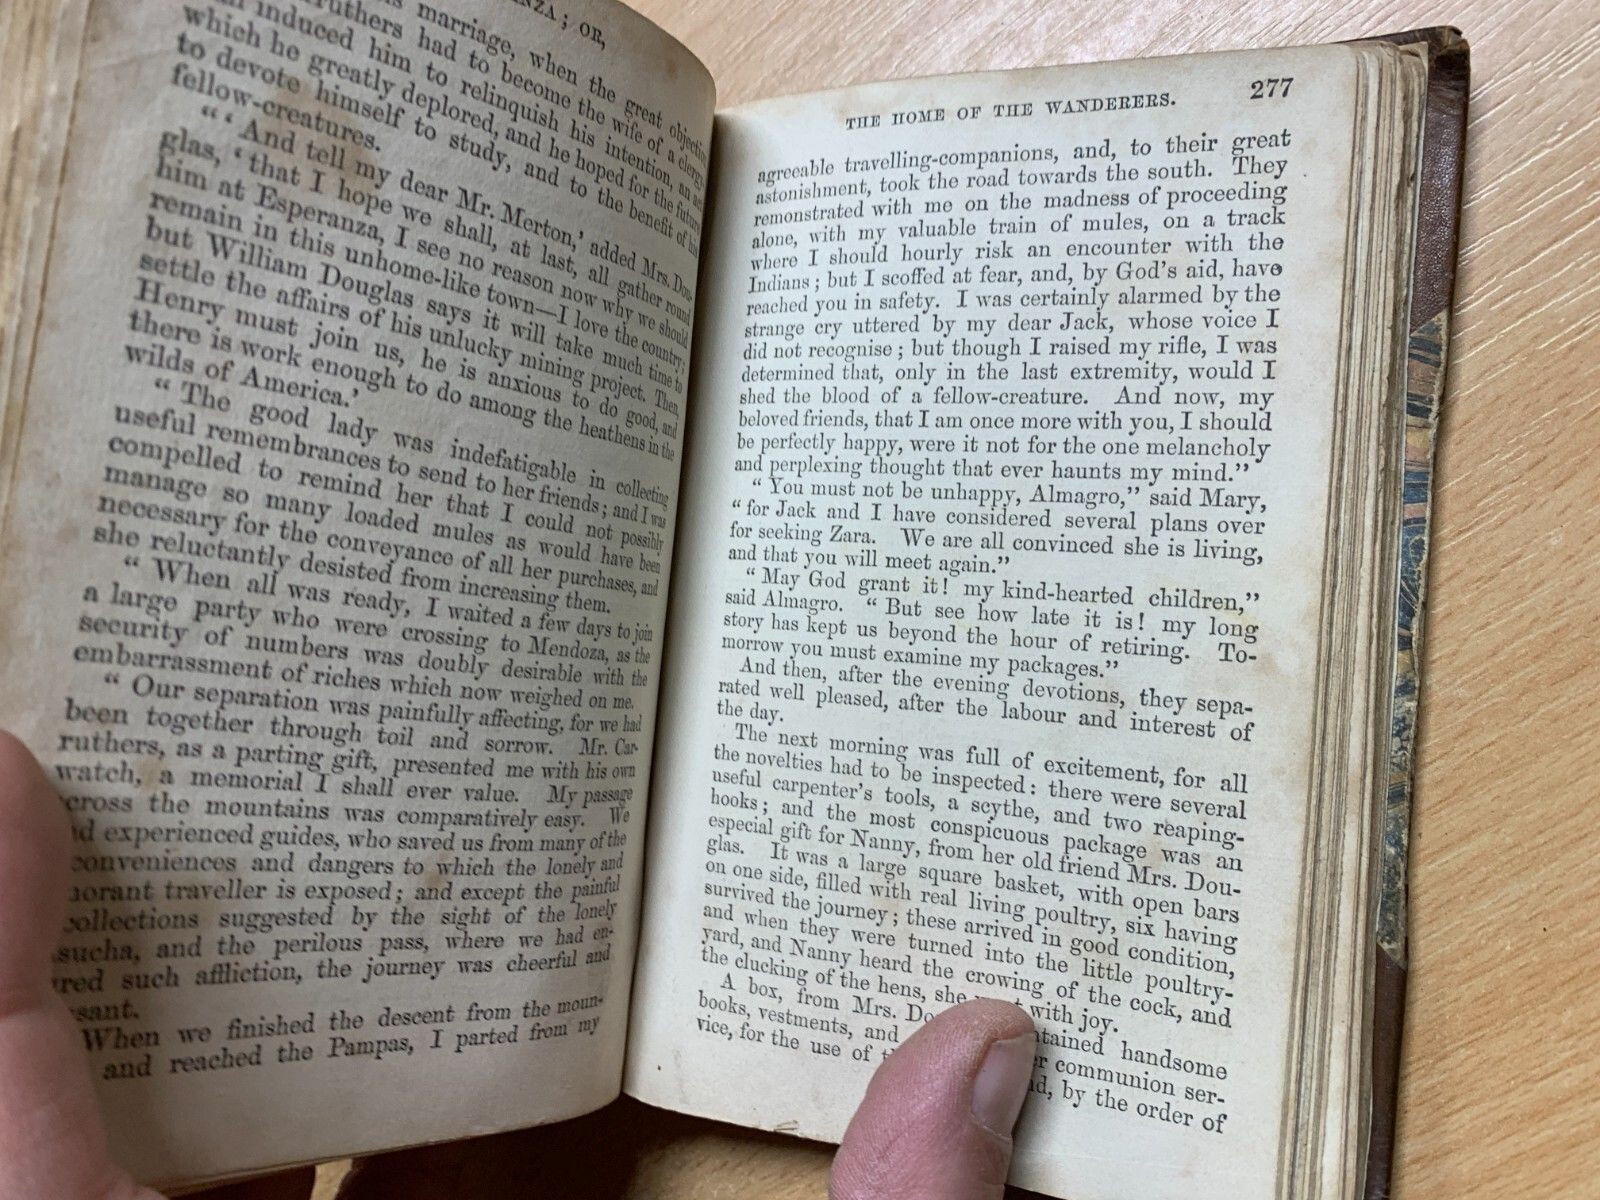 NZA; OR,
marriage, when the great objection
ruthers had to become the wife of a clergy-
induced him to relinquish his intention, an act
which he greatly deplored, and he hoped for the future
to devote himself to study, and to the benefit of his
fellow-creatures.
“‘And tell my dear Mr. Merton,’ added Mrs. Dou-
glas, ‘that I hope we shall, at last, all gather round
him at Esperanza, I see no reason now why we should
remain in this unhome-like town—I love the country;
but William Douglas says it will take much time to
settle the affairs of his unlucky mining project. Then,
Henry must join us, he is anxious to do good, and
there is work enough to do among the heathens in the
wilds of America.’
“The good lady was indefatigable in collecting
useful remembrances to send to her friends; and I was
compelled to remind her that I could not possibly
manage so many loaded mules as would have been
necessary for the conveyance of all her purchases, and
she reluctantly desisted from increasing them.
“When all was ready, I waited a few days to join
a large party who were crossing to Mendoza, as the
security of numbers was doubly desirable with the
embarrassment of riches which now weighed on me.
“Our separation was painfully affecting, for we had
been together through toil and sorrow. Mr. Car-
ruthers, as a parting gift, presented me with his own
watch, a memorial I shall ever value. My passage
cross the mountains was comparatively easy. We
d experienced guides, who saved us from many of the
conveniences and dangers to which the lonely and
norant traveller is exposed; and except the painful
collections suggested by the sight of the lonely
sucha, and the perilous pass, where we had en-
red such affliction, the journey was cheerful and
sant.
When we finished the descent from the moun-
and reached the Pampas, I parted from my
THE HOME OF THE WANDERERS. 277
agreeable travelling-companions, and, to their great
astonishment, took the road towards the south. They
remonstrated with me on the madness of proceeding
alone, with my valuable train of mules, on a track
where I should hourly risk an encounter with the
Indians; but I scoffed at fear, and, by God’s aid, have
reached you in safety. I was certainly alarmed by the
strange cry uttered by my dear Jack, whose voice I
did not recognise; but though I raised my rifle, I was
determined that, only in the last extremity, would I
shed the blood of a fellow-creature. And now, my
beloved friends, that I am once more with you, I should
be perfectly happy, were it not for the one melancholy
and perplexing thought that ever haunts my mind.”
“You must not be unhappy, Almagro,” said Mary,
“for Jack and I have considered several plans over
for seeking Zara. We are all convinced she is living,
and that you will meet again.”
“May God grant it! my kind-hearted children,”
said Almagro. “But see how late it is! my long
story has kept us beyond the hour of retiring. To-
morrow you must examine my packages.”
And then, after the evening devotions, they sepa-
rated well pleased, after the labour and interest of
the day.
The next morning was full of excitement, for all
the novelties had to be inspected: there were several
useful carpenter’s tools, a scythe, and two reaping-
hooks; and the most conspicuous package was an
especial gift for Nanny, from her old friend Mrs. Dou-
glas. It was a large square basket, with open bars
on one side, filled with real living poultry, six having
survived the journey; these arrived in good condition,
and when they were turned into the little poultry-
yard, and Nanny heard the crowing of the cock, and
the clucking of the hens, she with joy.
A box, from Mrs. Do ntained handsome
books, vestments, and er communion ser-
vice, for the use of nd, by the order of